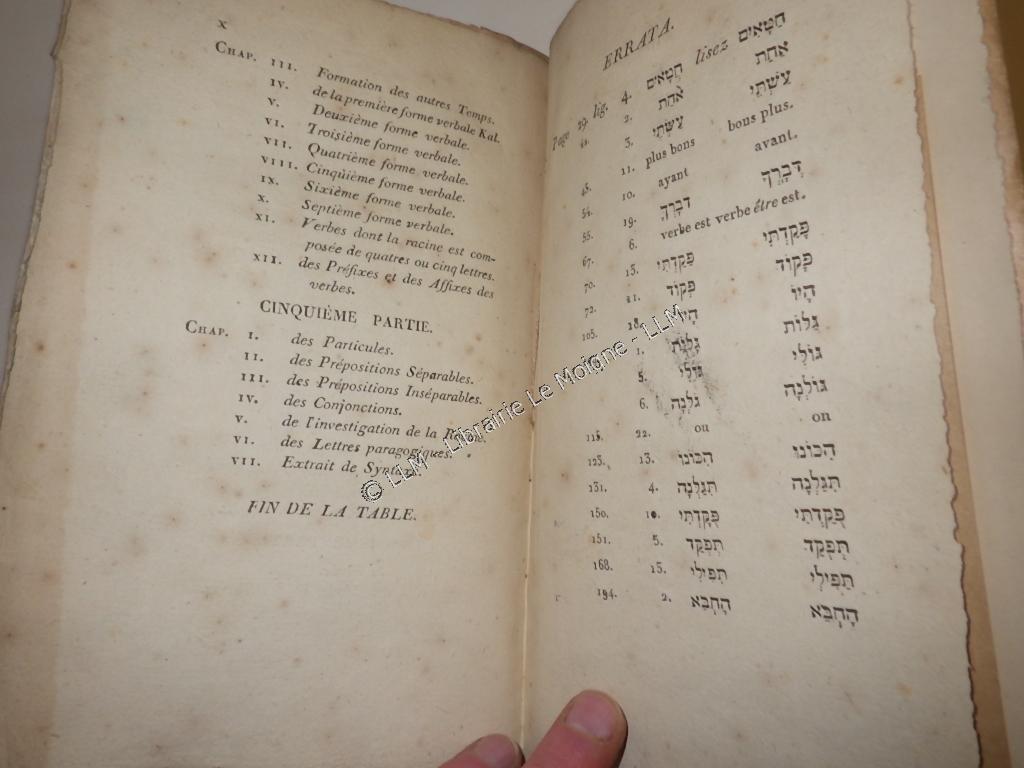 X
CHAP. III. Formation des autres Temps.
IV. de la première forme verbale Kal.
V. Deuxième forme verbale.
VI. Troisième forme verbale.
VII. Quatrième forme verbale.
VIII. Cinquième forme verbale.
IX. Sixième forme verbale.
X. Septième forme verbale.
XI. Verbes dont la racine est com-
posée de quatres ou cinq lettres.
XII. des Préfixes et des Affixes des
verbes.
CINQUIÈME PARTIE.
CHAP. I. des Particules.
II. des Prépositions Séparables.
III. des Prépositions Inséparables.
IV. des Conjonctions.
V. de l'investigation de la
VI. des Lettres paragogiques.
VII. Extrait de
FIN DE LA TABLE.
ERRATA.
Page 29. lig. 4. lisez
2.
3.
45. 11. plus bons bons plus.
54. 10. ayant avant.
55. 19. דְבָרְךָ
67. 6. verbe est verbe être est.
70. 15. פָּקַדְתִּי
72. 11. פָּקוֹד
105. 18. הָיוֹ
1. גַּלּוֹת
5. גּוֹלִי
6. גּוֹלְנָה
115. 22. ou on
123. 13. הִכּוֹנוּ הִכּוֹנוּ
131. 4. תִּגַּלְנָה
150. 10. פֻּקַּדְתִּי
151. 5. תִּפְקַד
168. 15. תַּפִילִי
194. 2. הָחְבֵּא
© LLM - Librairie Le Moigne - LLM